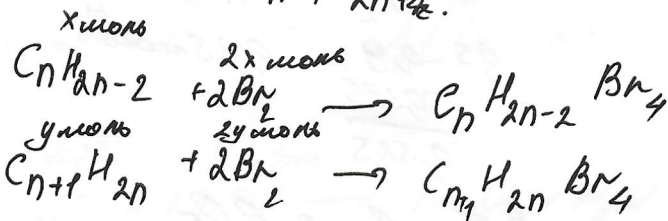 x моль
2x моль
CnH2n-2 +2Br2 → CnH2n-2 Br4
y моль 2y моль
Cn+1H2n +2Br2 → Cn+1H2nBr4